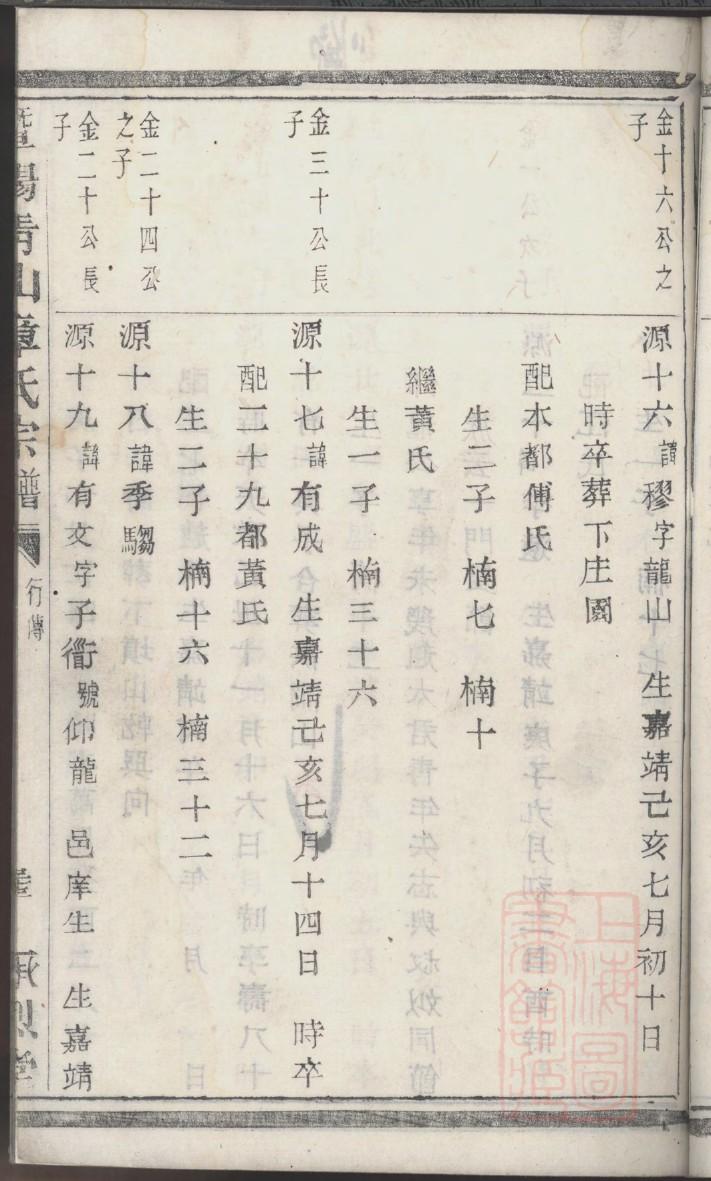 金十六公之
子
源十六諱穆字龍山 生嘉靖己亥七月初十日
時卒葬下庄園
配本都傅氏
生二子 楠七 楠十
繼黃氏
生一子 楠三十六
金三十公長
子
源十七諱有成 生嘉靖己亥七月十四日 時卒
配二十九都黃氏
生二子 楠十六 楠三十二
金二十四公
之子
源十八諱季騶
金二十公長
子
源十九諱有文字子衢號仰龍 邑庠生 生嘉靖
暨陽青山章氏宗譜
行傳
承烈堂
上海圖書館藏